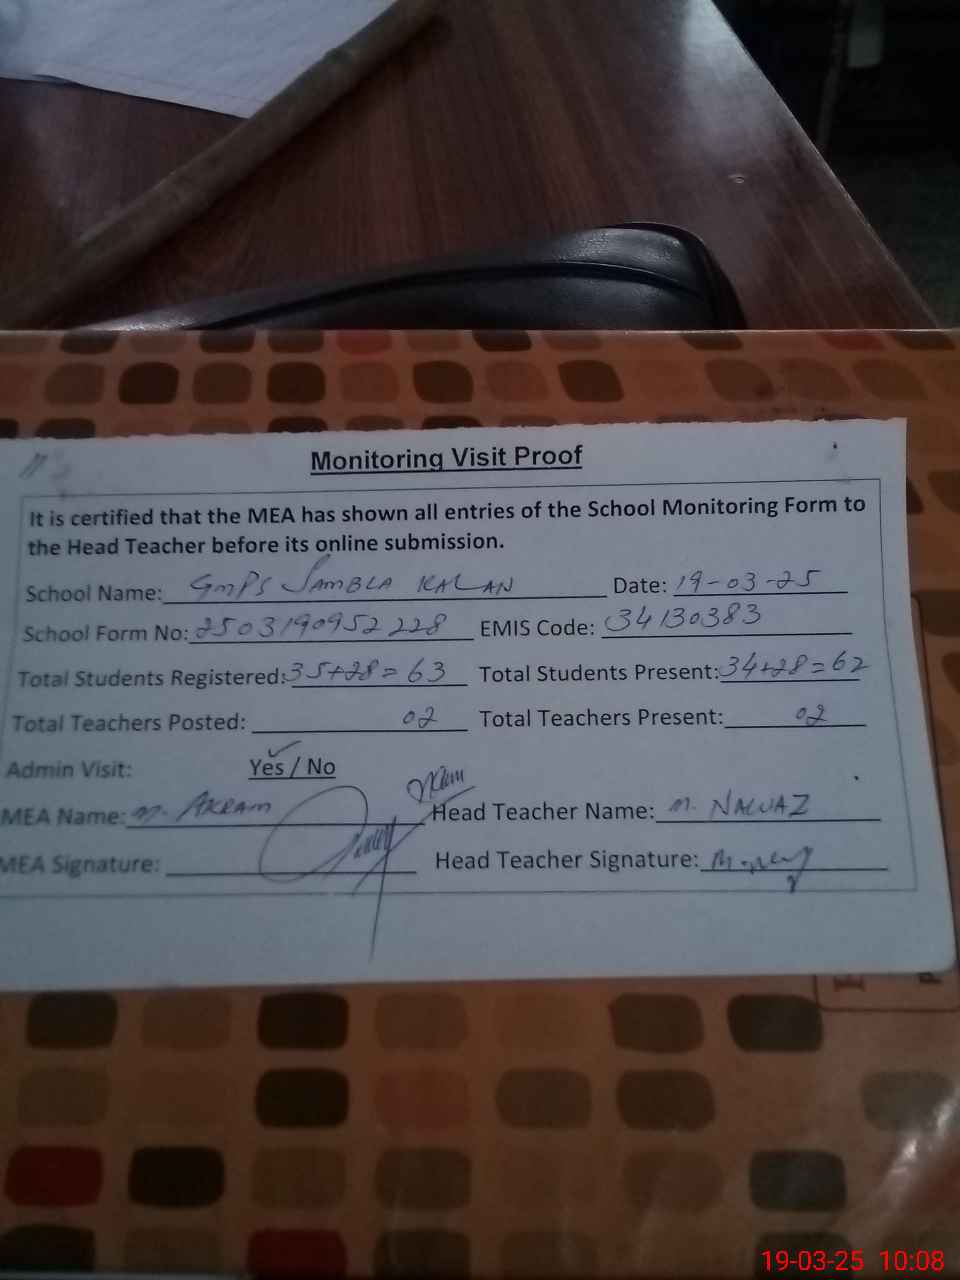 Monitoring Visit Proof
It is certified that the MEA has shown all entries of the School Monitoring Form to
the Head Teacher before its online submission.
School Name: GMPS SAMBLA KALAN Date: 19-03-25
School Form No: 250319095 2228 EMIS Code: 34130383
Total Students Registered: 35+28=63 Total Students Present: 34+28=62
Total Teachers Posted: 02 Total Teachers Present: 02
Admin Visit: Yes / No
MEA Name: M. AKRAM Head Teacher Name: M. NAWAZ
MEA Signature: Head Teacher Signature:
19-03-25 10:08